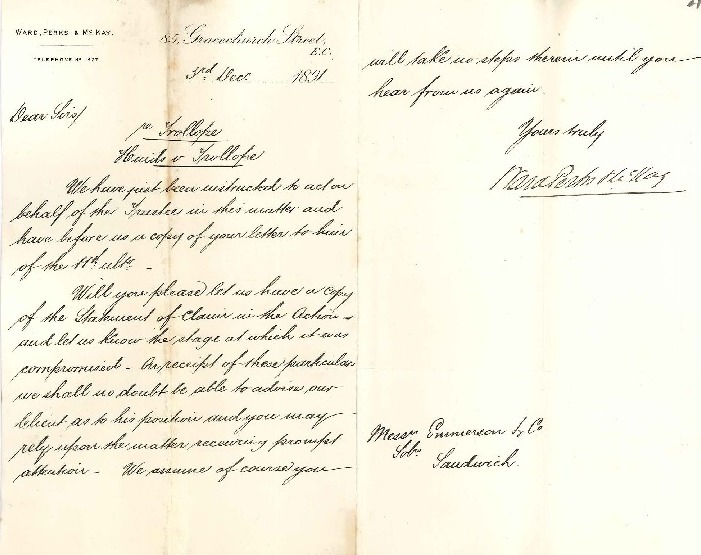 WARD, PERKS & McKAY.
TELEPHONE Nº 1477
85, Gracechurch Street,
E.C.
3rd Dec 1891
Dear Sirs/
re Trollope
v Trollope
We have just been instructed to act on
behalf of the Trustee in this matter and
have before us a copy of your letter to him
of the 11th ulto. –
Will you please let us have a copy
of the Statement of Claim in the Action –
and let us know the stage at which it was
compromised – On receipt of these particulars
we shall no doubt be able to advise our
Client as to his position and you may
rely upon the matter receiving prompt
attention – We assume of course you –
will take no steps therein until you –
hear from us again
Yours truly
Ward Perks & McKay
Messrs Emmerson & Co
Solrs
Sandwich.